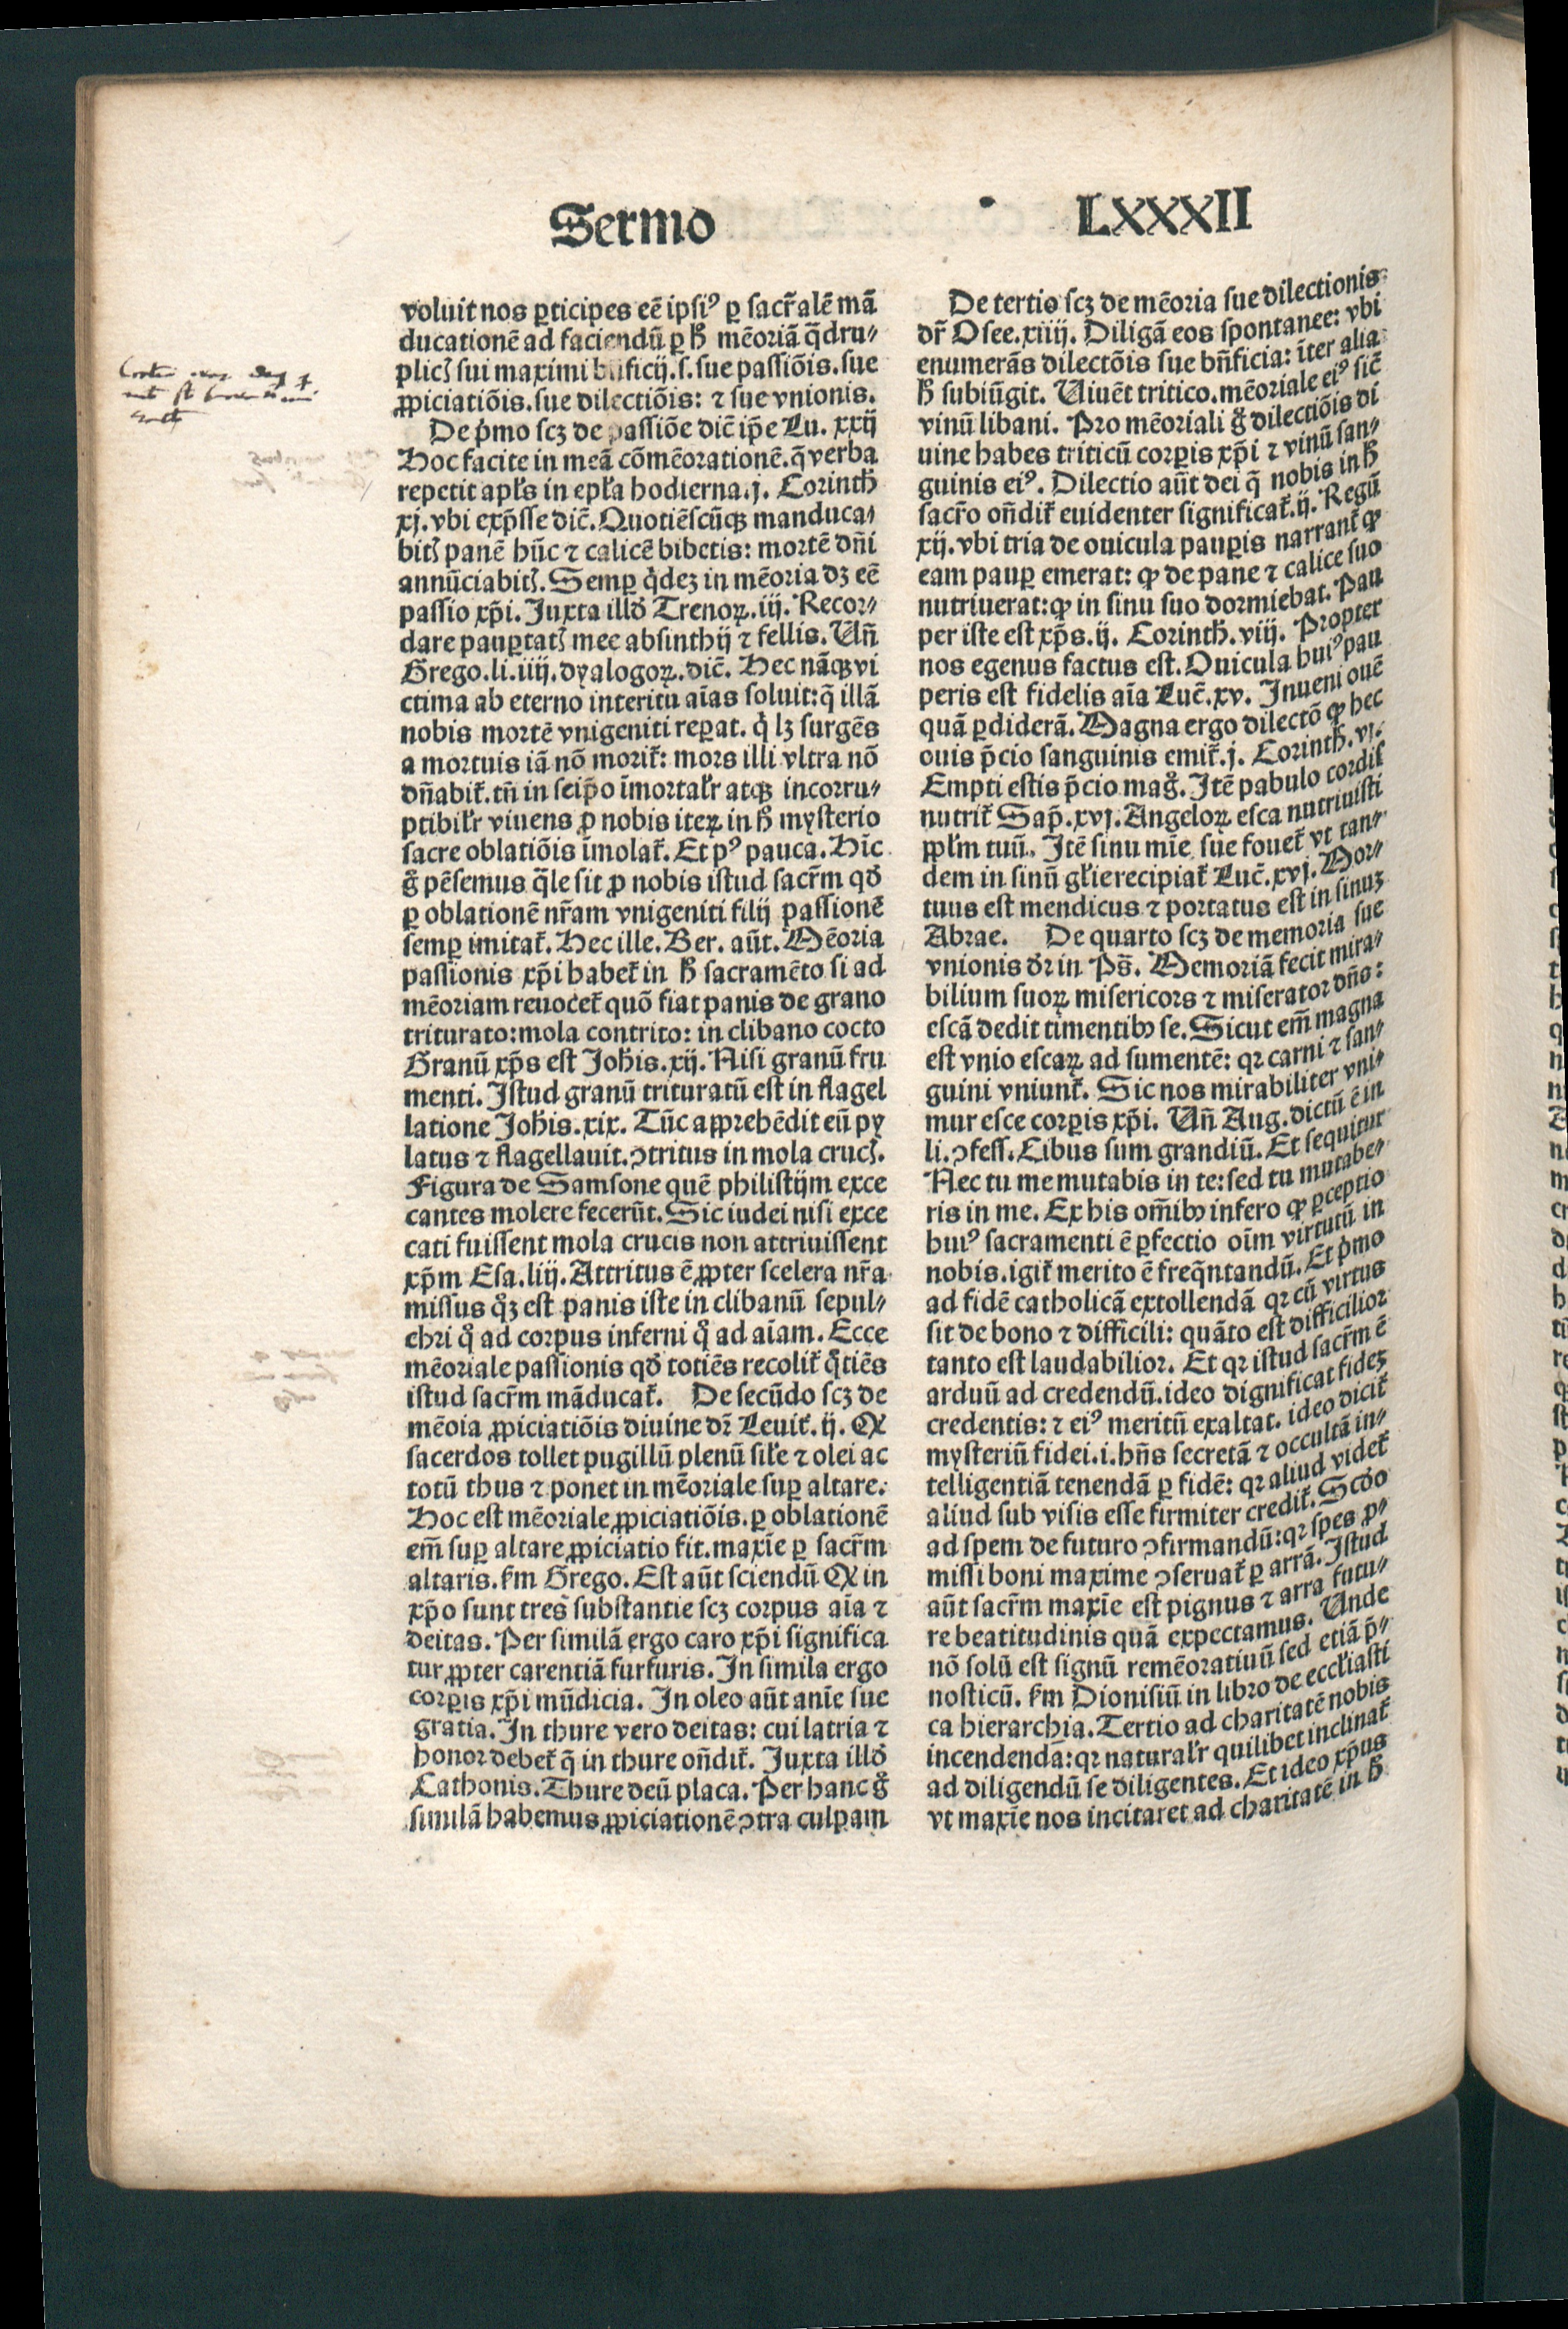 Sermo LXXXII
voluit nos ꝑticipes eē ipsiꝰ ꝑ sacr̄alē mā
ducationē ad faciendū ꝑ h̄ mēoriā q̄dru⸗
plicꝭ sui maximi bn̄ficij.s.sue passiōis.sue
ꝓpiciatiōis.sue dilectiōis: ⁊ sue vnionis.
De pͥmo scꝫ de passiōe dic̄ ip̄e Lu. xxij
Hoc facite in meā cōmēorationē.q̄ verba
repetit apl̄s in epl̄a hodierna.j. Corinth̄
xj.vbi exp̄sse dic̄.Quotiēscūqꝫ manduca⸗
bitꝭ panē hūc ⁊ calicē bibetis: mortē dn̄i
annūciabitꝭ.Semꝑ qͥdeꝫ in mēoria dꝫ eē
passio xp̄i.Juxta illd̓ Trenoꝝ.iij.Recor⸗
dare pauꝑtatꝭ mee absinthij ⁊ fellis.Vn̄
Grego.li.iiij.dyalogoꝝ.dic̄. Hec nāqꝫ vi
ctima ab eterno interitu aīas soluit:q̄ illā
nobis mortē vnigeniti reꝑat. qͥ lꝫ surgēs
a mortuis iā nō morit᷑: mors illi vltra nō
dn̄abit᷑.tn̄ in seip̄o īmortal̓r atqꝫ incorru⸗
ptibil̓r viuens ꝓ nobis iteꝝ in h̄ mysterio
sacre oblatiōis īmolat᷑.Et pꝰ pauca.Hīc
gͦ pēsemus q̄le sit ꝓ nobis istud sacr̄m qd̓
ꝑ oblationē nr̄am vnigeniti filij passionē
semꝑ imitat᷑.Hec ille.Ber. aūt.Mēoria
passionis xp̄i habet᷑ in h̄ sacramēto si ad
mēoriam reuocet᷑ quō fiat panis de grano
triturato:mola contrito: in clibano cocto
Granū xp̄s est Joh̄is.xij.Nisi granū fru
menti.Istud granū trituratū est in flagel
latione Joh̄is.xix. Tūc apprehēdit eū py
latus ⁊ flagellauit.ↄtritus in mola crucꝭ.
Figura de Samsone quē philistijm exce
cantes molere fecerūt.Sic iudei nisi exce
cati fuissent mola crucis non attriuissent
xp̄m Esa.liij.Attritus ē ꝓpter scelera nr̄a
missus qͦꝫ est panis iste in clibanū sepul⸗
chri qͦ ad corpus inferni qͦ ad aīam.Ecce
mēoriale passionis qd̓ totiēs recolit᷑ qͦtiēs
istud sacr̄m māducat᷑. De secūdo scꝫ de
mēoia ꝓpiciatiōis diuine dr̄ Leuit᷑.ij.Ꝙ
sacerdos tollet pugillū plenū sil̓e ⁊ olei ac
totū thus ⁊ ponet in mēoriale suꝑ altare.
Hoc est mēoriale ꝓpiciatiōis.ꝑ oblationē
em̄ suꝑ altare ꝓpiciatio fit.maxīe ꝑ sacr̄m
altaris.km Grego.Est aūt sciendū Ꝙ in
xp̄o sunt tres substantie scꝫ corpus aīa ⁊
deitas.Per similā ergo caro xp̄i significa
tur ꝓpter carentiā furfuris.In simila ergo
corꝑis xp̄i mūdicia.In oleo aūt anīe sue
gratia.In thure vero deitas: cui latria ⁊
honor debet᷑ q̄ in thure on̄dit᷑.Juxta illd̓
Cathonis.Thure deū placa.Per hanc gͦ
similā habemus ꝓpiciationē ↄtra culpam
De tertio scꝫ de mēoria sue dilectionis
dr̄ Osee.xiiij. Diligā eos spontanee: vbi
enumerās dilectōis sue bn̄ficia: īter alia
h̄ subiūgit. Viuēt tritico.mēoriale eiꝰ sic̄
vinū libani. Pro mēoriali gͦ dilectiōis di
uine habes triticū corꝑis xp̄i ⁊ vinū san⸗
guinis eiꝰ. Dilectio aūt dei q̄ nobis in h̄
sacr̄o on̄dit᷑ euidenter significat᷑.ij. Regū
xij.vbi tria de ouicula pauꝑis narrant᷑ ꝙ
eam pauꝑ emerat: ꝙ de pane ⁊ calice suo
nutriuerat:ꝙ in sinu suo dormiebat.Pau
per iste est xp̄s.ij. Corinth̄.viij. Propter
nos egenus factus est.Ouicula huiꝰ pau
peris est fidelis aīa Luc̄.xv. Inueni ouē
quā ꝑdiderā.Magna ergo dilectō ꝙ hec
ouis p̄cio sanguinis emit᷑.j. Corinth̄.vj.
Empti estis p̄cio mag̓. Itē pabulo cordis
nutrit᷑ Sap̄.xvj.Angeloꝝ esca nutriuisti
ppl̓m tuū. Itē sinu mīe sue fouet᷑ vt tan⸗
dem in sinū gl̓ie recipiat᷑ Luc̄.xvj.Mor⸗
tuus est mendicus ⁊ portatus est in sinuꝫ
Abrae. De quarto scꝫ de memoria sue
vnionis dr̄ in Ps̄. Memoriā fecit mira⸗
bilium suoꝝ misericors ⁊ miserator dn̄s:
escā dedit timentibꝰ se.Sicut em̄ magna
est vnio escaꝝ ad sumentē: qꝛ carni ⁊ san⸗
guini vniunt᷑. Sic nos mirabiliter vni⸗
mur esce corꝑis xp̄i. Vn̄ Aug.dictū ē in
li.ↄfess.Cibus sum grandiū.Et sequitur
Nec tu me mutabis in te:sed tu mutabe⸗
ris in me.Ex his om̄ibꝰ infero ꝙ ꝑceptio
huiꝰ sacramenti ē ꝑfectio oīm virtutū in
nobis.igit᷑ merito ē freq̄ntandū.Et pͥmo
ad fidē catholicā extollendā qꝛ cū virtus
sit de bono ⁊ difficili: quāto est difficilior
tanto est laudabilior. Et qꝛ istud sacr̄m ē
arduū ad credendū.ideo dignificat fideꝫ
credentis: ⁊ eiꝰ meritū exaltat. ideo dicit᷑
mysteriū fidei.i.hn̄s secretā ⁊ occultā in⸗
telligentiā tenendā ꝑ fidē: qꝛ aliud videt᷑
aliud sub visis esse firmiter credit᷑.Scd̓o
ad spem de futuro ↄfirmandū:qꝛ spes ꝓ⸗
missi boni maxime ↄseruat᷑ ꝑ arrā.Istud
aūt sacr̄m maxīe est pignus ⁊ arra futu⸗
re beatitudinis quā expectamus. Unde
nō solū est signū remēoratiuū sed etiā p̄⸗
nosticū. km Dionisiū in libro de eccl̓iasti
ca hierarchia.Tertio ad charitatē nobis
incendendā:qꝛ natural̓r quilibet inclinat᷑
ad diligendū se diligentes.Et ideo xp̄us
vt maxīe nos incitaret ad charitatē in h̄